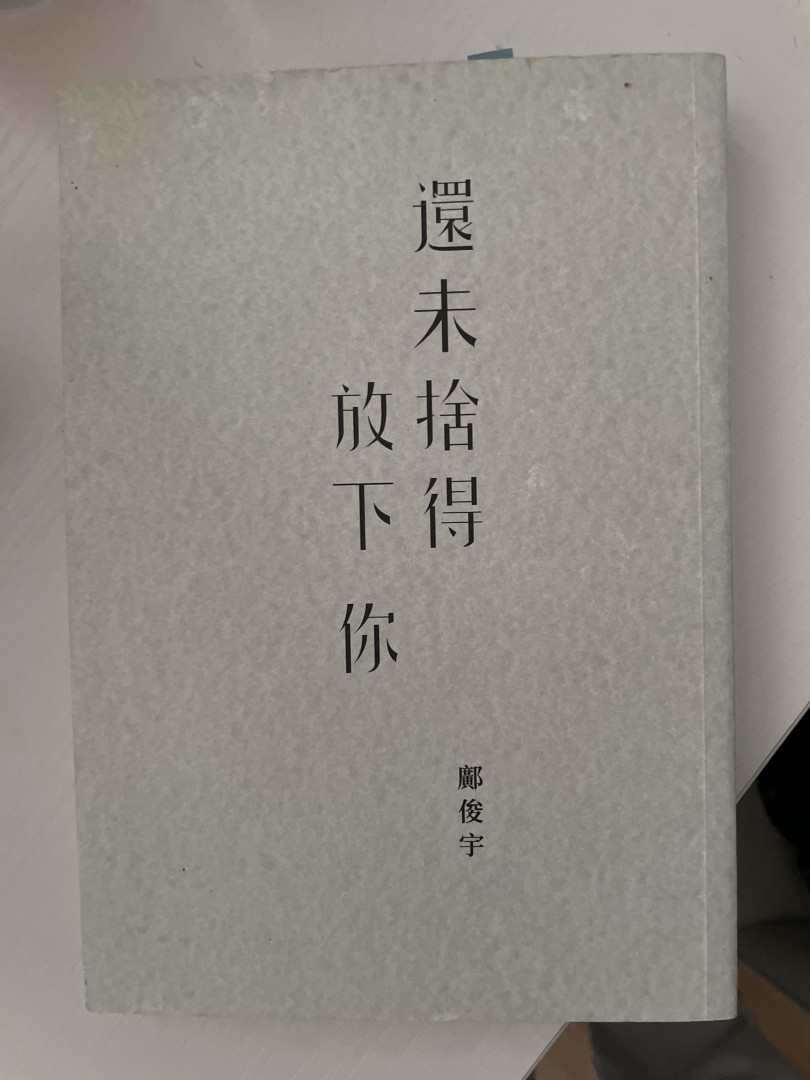 還未捨得
放下你
鄺俊宇